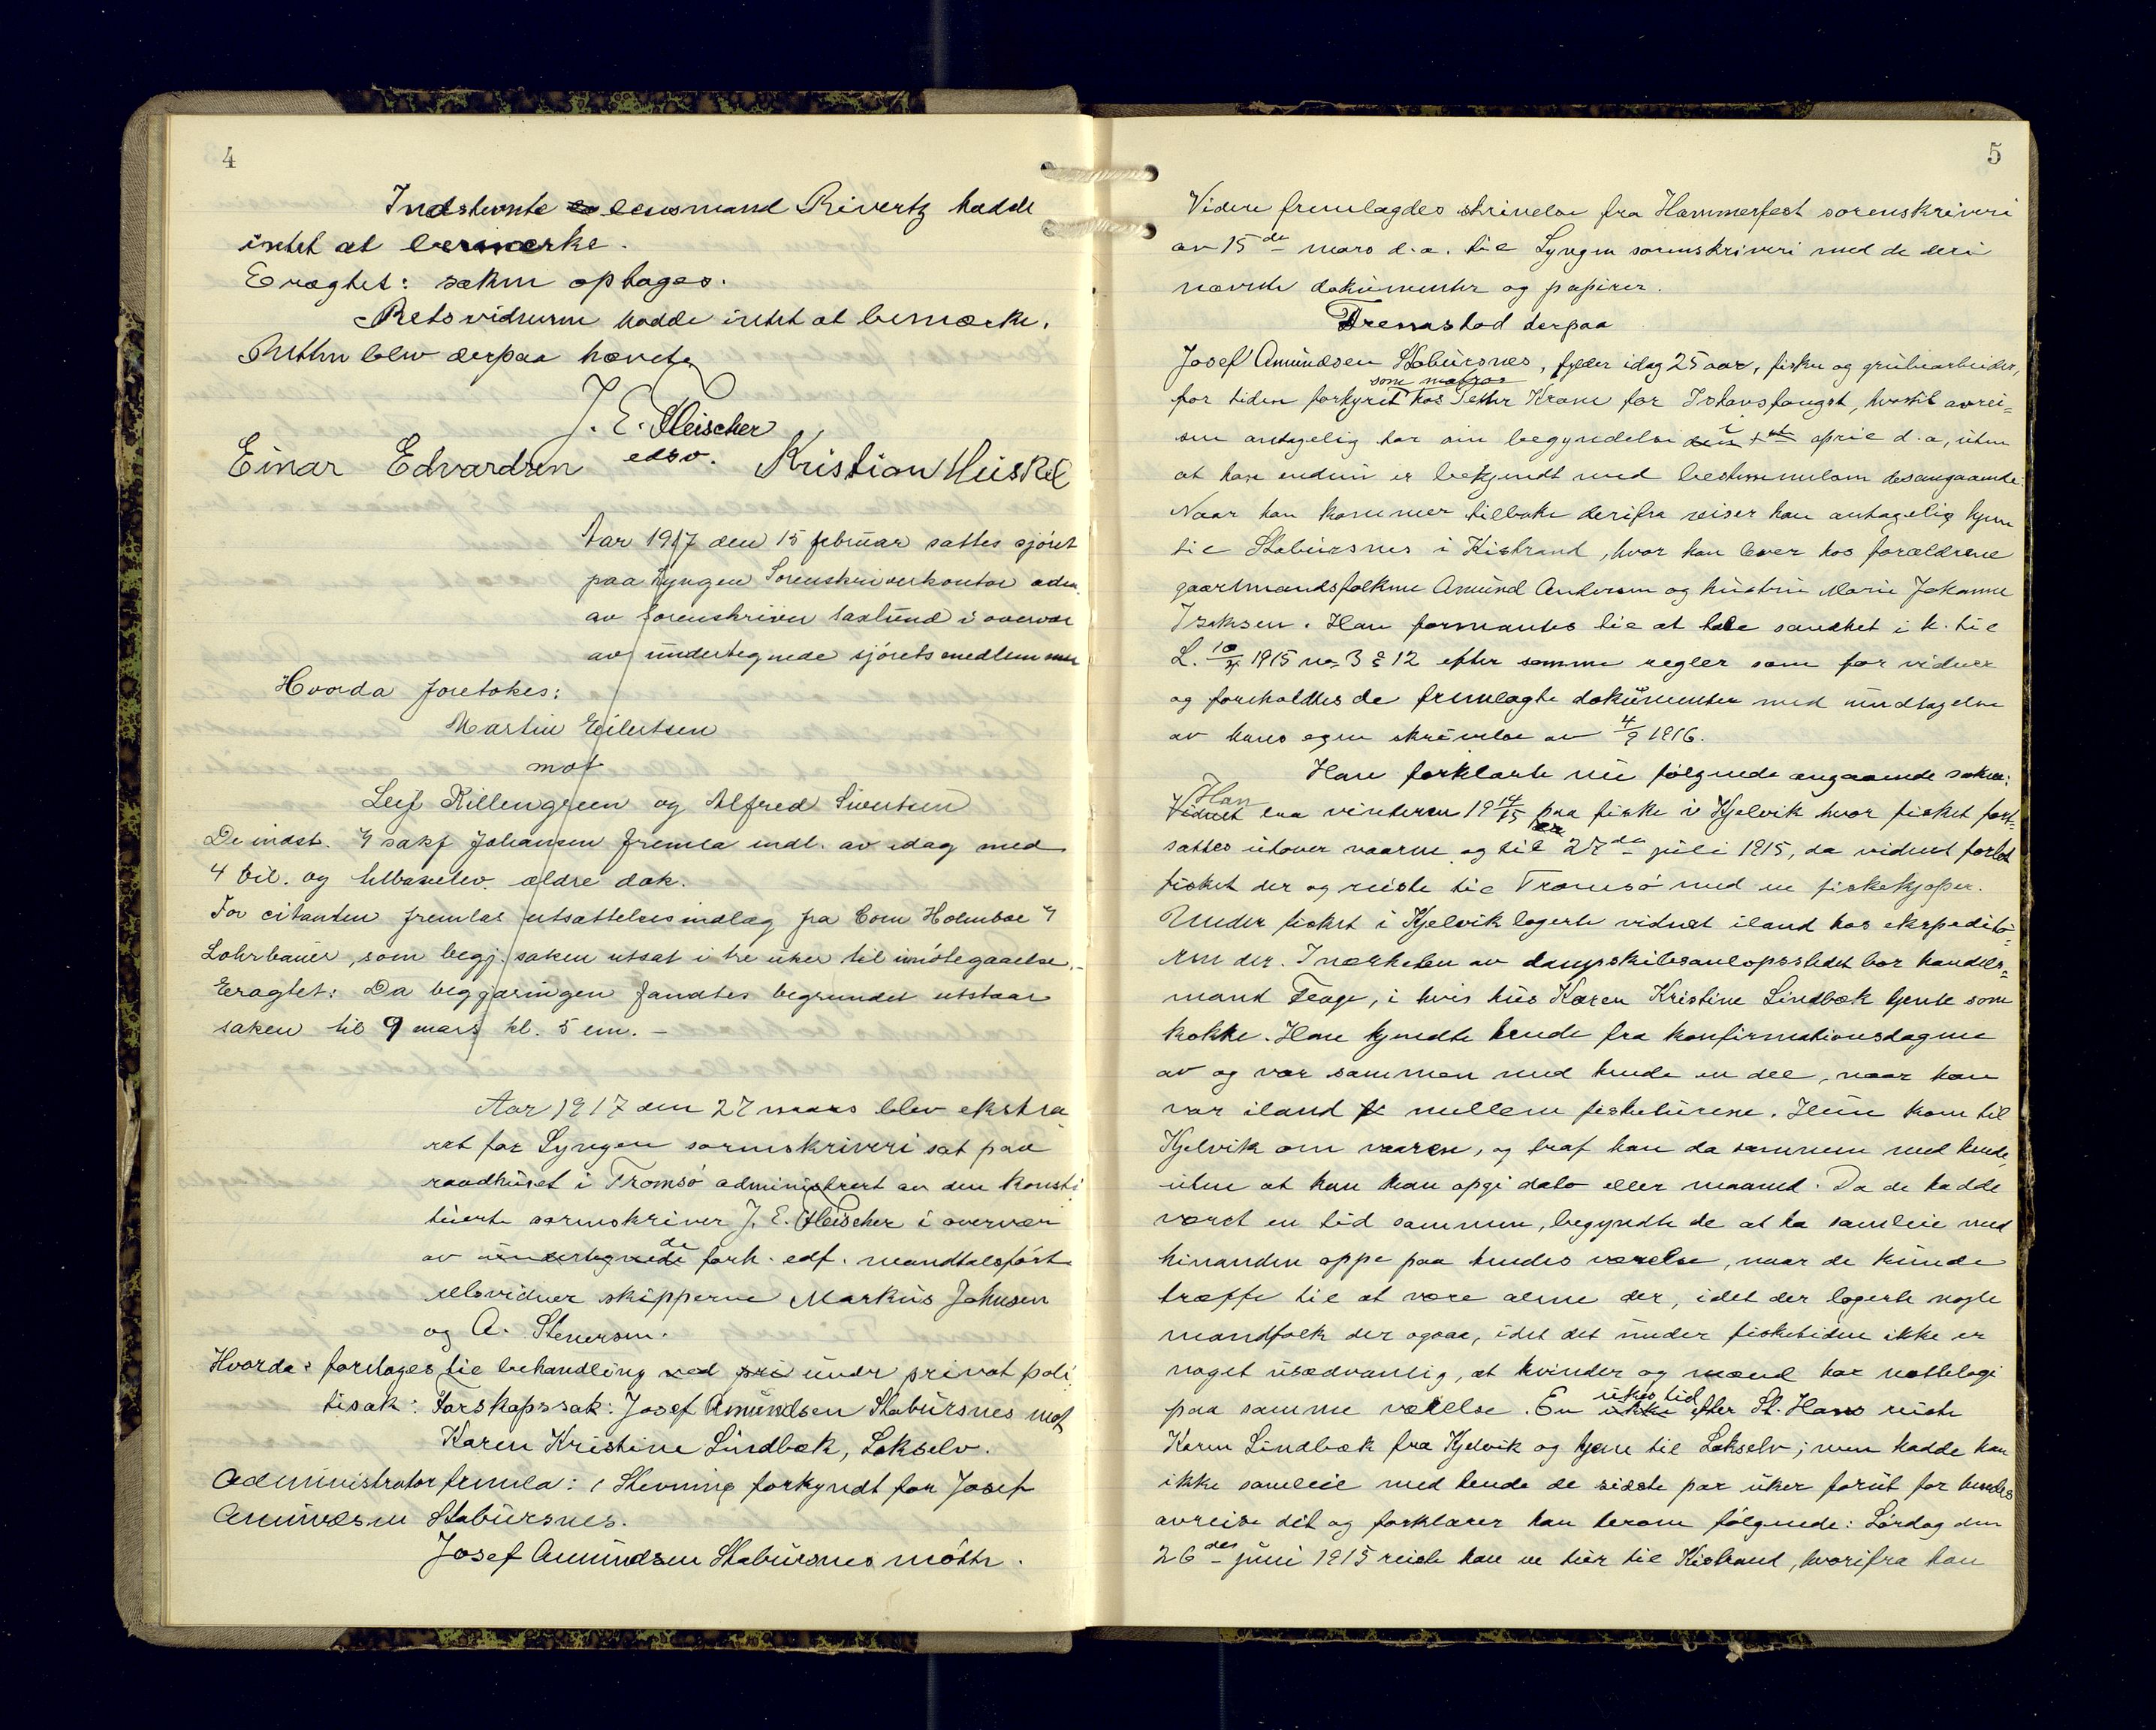 4
Indstevnte lensmand Rivertz hadde
intet at bemerke.
Eragtet: saken optages.
Retsvidnerne hadde intet at bemærke.
Retten blev derpaa hævet.
J. E. Fleischer
edsv.
Einar Edvardsen Kristian Huskel
Aar 1917 den 15 februar sattes sjóret
paa Lyngen Sorenskriverkontor adm.
av sorenskriver Saxlund i overvær
av undertegnede sjóretsmedlemmer
Hvorda foretokes:
Martin Eilertsen
mot
Leif Killengreen og Alfred Sivertsen
De indst. v/ sakf Johansen fremla indl. av idag med
4 bil. og tilbakelev. ældre dok.
For citanten fremlas utsættelsesindlæg fra Conr Holmboe &
Lohrbauer, som begj. saken utsat i tre uker til imótegaaelse.-
Eragtet: Da begjæringen fandtes begrundet utstaar
saken til 9 mars kl. 5 em. -
Aar 1917 den 27 mars blev ekstra
ret for Lyngen sorenskriveri sat paa
raadhuset i Tromsö administrert av den konsti
tuerte sorenskriver J. E. Fleischer i overvær
av undertegnede de forh. edf. mandtalsfört
retsvidner skipperne Markus Johnsen
og A. Stenersen.
Hvorda: foretages til behandling ved pri under privat poli
tisak: Farskapssak: Josef Amundsen Stabursnes mot
Karen Kristine Lindbæk, Lakselv.
Administrator fremla: 1 Stevning forkyndt for Josef
Amundsen Stabursnes.
Josef Amundsen Stabursnes mötte.
5
Videre fremlagdes skrivelse fra Hammerfest sorenskriveri
av 15de mars d.a. til Lyngen sorenskriveri med de deri
nævnte dokumenter og papirer.
Fremstod derpaa
Josef Amundsen Stabursnes, fylder idag 25 aar, fisker og grubearbeider,
som matros
for tiden forhyret hos Petter Krane for Ishavsfangst, hvortil avrei=
sen antagelig tar sin begyndelse den i april d.a, uten
at han endnu er bekjendt med bestemmelsen desangaaende.
Naar han kommer tilbake derifra reiser han antagelig hjem
til Stabursnes i Kistrand, hvor han lever hos forældrene
gaardmandsfolkene Amund Andersen og hustru Marie Johanne
Isaksen. Han formantes til at tale sandhet i h. til
L. 10/4 1915 no 3 § 12 efter samme regler som for vidner
og foreholdtes de fremlagte dokumenter med undtagelse
av hans egen skrivelse av 4/9 1916.
Han forklarte nu følgende angaaende saken:
Han
Vidnet laa vinteren 19 14/15 paa fiske i Kjelvik hvor fisket fort=
sattes utover vaaren og til 27de juli 1915, da vidnet forlot
fisket der og reiste til Tromsö med en fiskekjøper.
Under fisket i Kjelvik logerte vidnet iland hos ekspeditö=
ren der. I nærheten av dampskibsanlopsstedet bor handels=
mand Feage, i hvis hus Karen Kristine Lindbæk tjente som
kokke. Han kjendte hende fra konfirmationsdagene
av og var sammen med hende en del, naar han
var iland mellem fisketurene. Hun kom til
Kjelvik om vaaren, og traf han da sammen med hende,
uten at han kan opgi dato eller maaned. Da de hadde
været en tid sammen, begyndte de at ha samleie med
hinanden oppe paa hendes værelse, naar de kunde
træffe til at være alene der, idet der logerte nogle
mandfolk der ogsaa, idet det under fisketiden ikke er
noget usædvanlig, at kvinder og mænd har nattelogi
ukes tid
paa samme værelse. En ukke efter St. Hans reiste
Karen Lindbæk fra Kjelvik og hjem til Lakselv; men hadde han
ikke samleie med hende de sidste par uker forut for hendes
avreise dit og forklarer han herom fölgende: Lördag den
26des juni 1915 reiste han en tur til Kistrand, hvorifra han